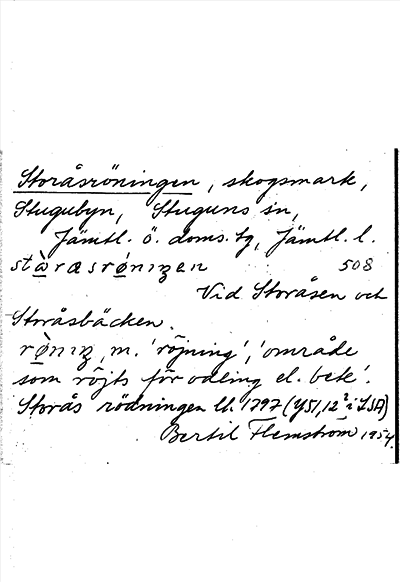 Storåsröningen, skogsmark,
Stugubyn, Stuguns sn,
Jämtl. ö. doms. tg, Jämtl. l.
508
Vid Storåsen och
Storåsbäcken.
m. 'röjning', 'område
som röjts för odling el. bete'.
Storås rödningen ll. 1797 (Y51, 12² i LSA)
Bertil Flemström 1954.